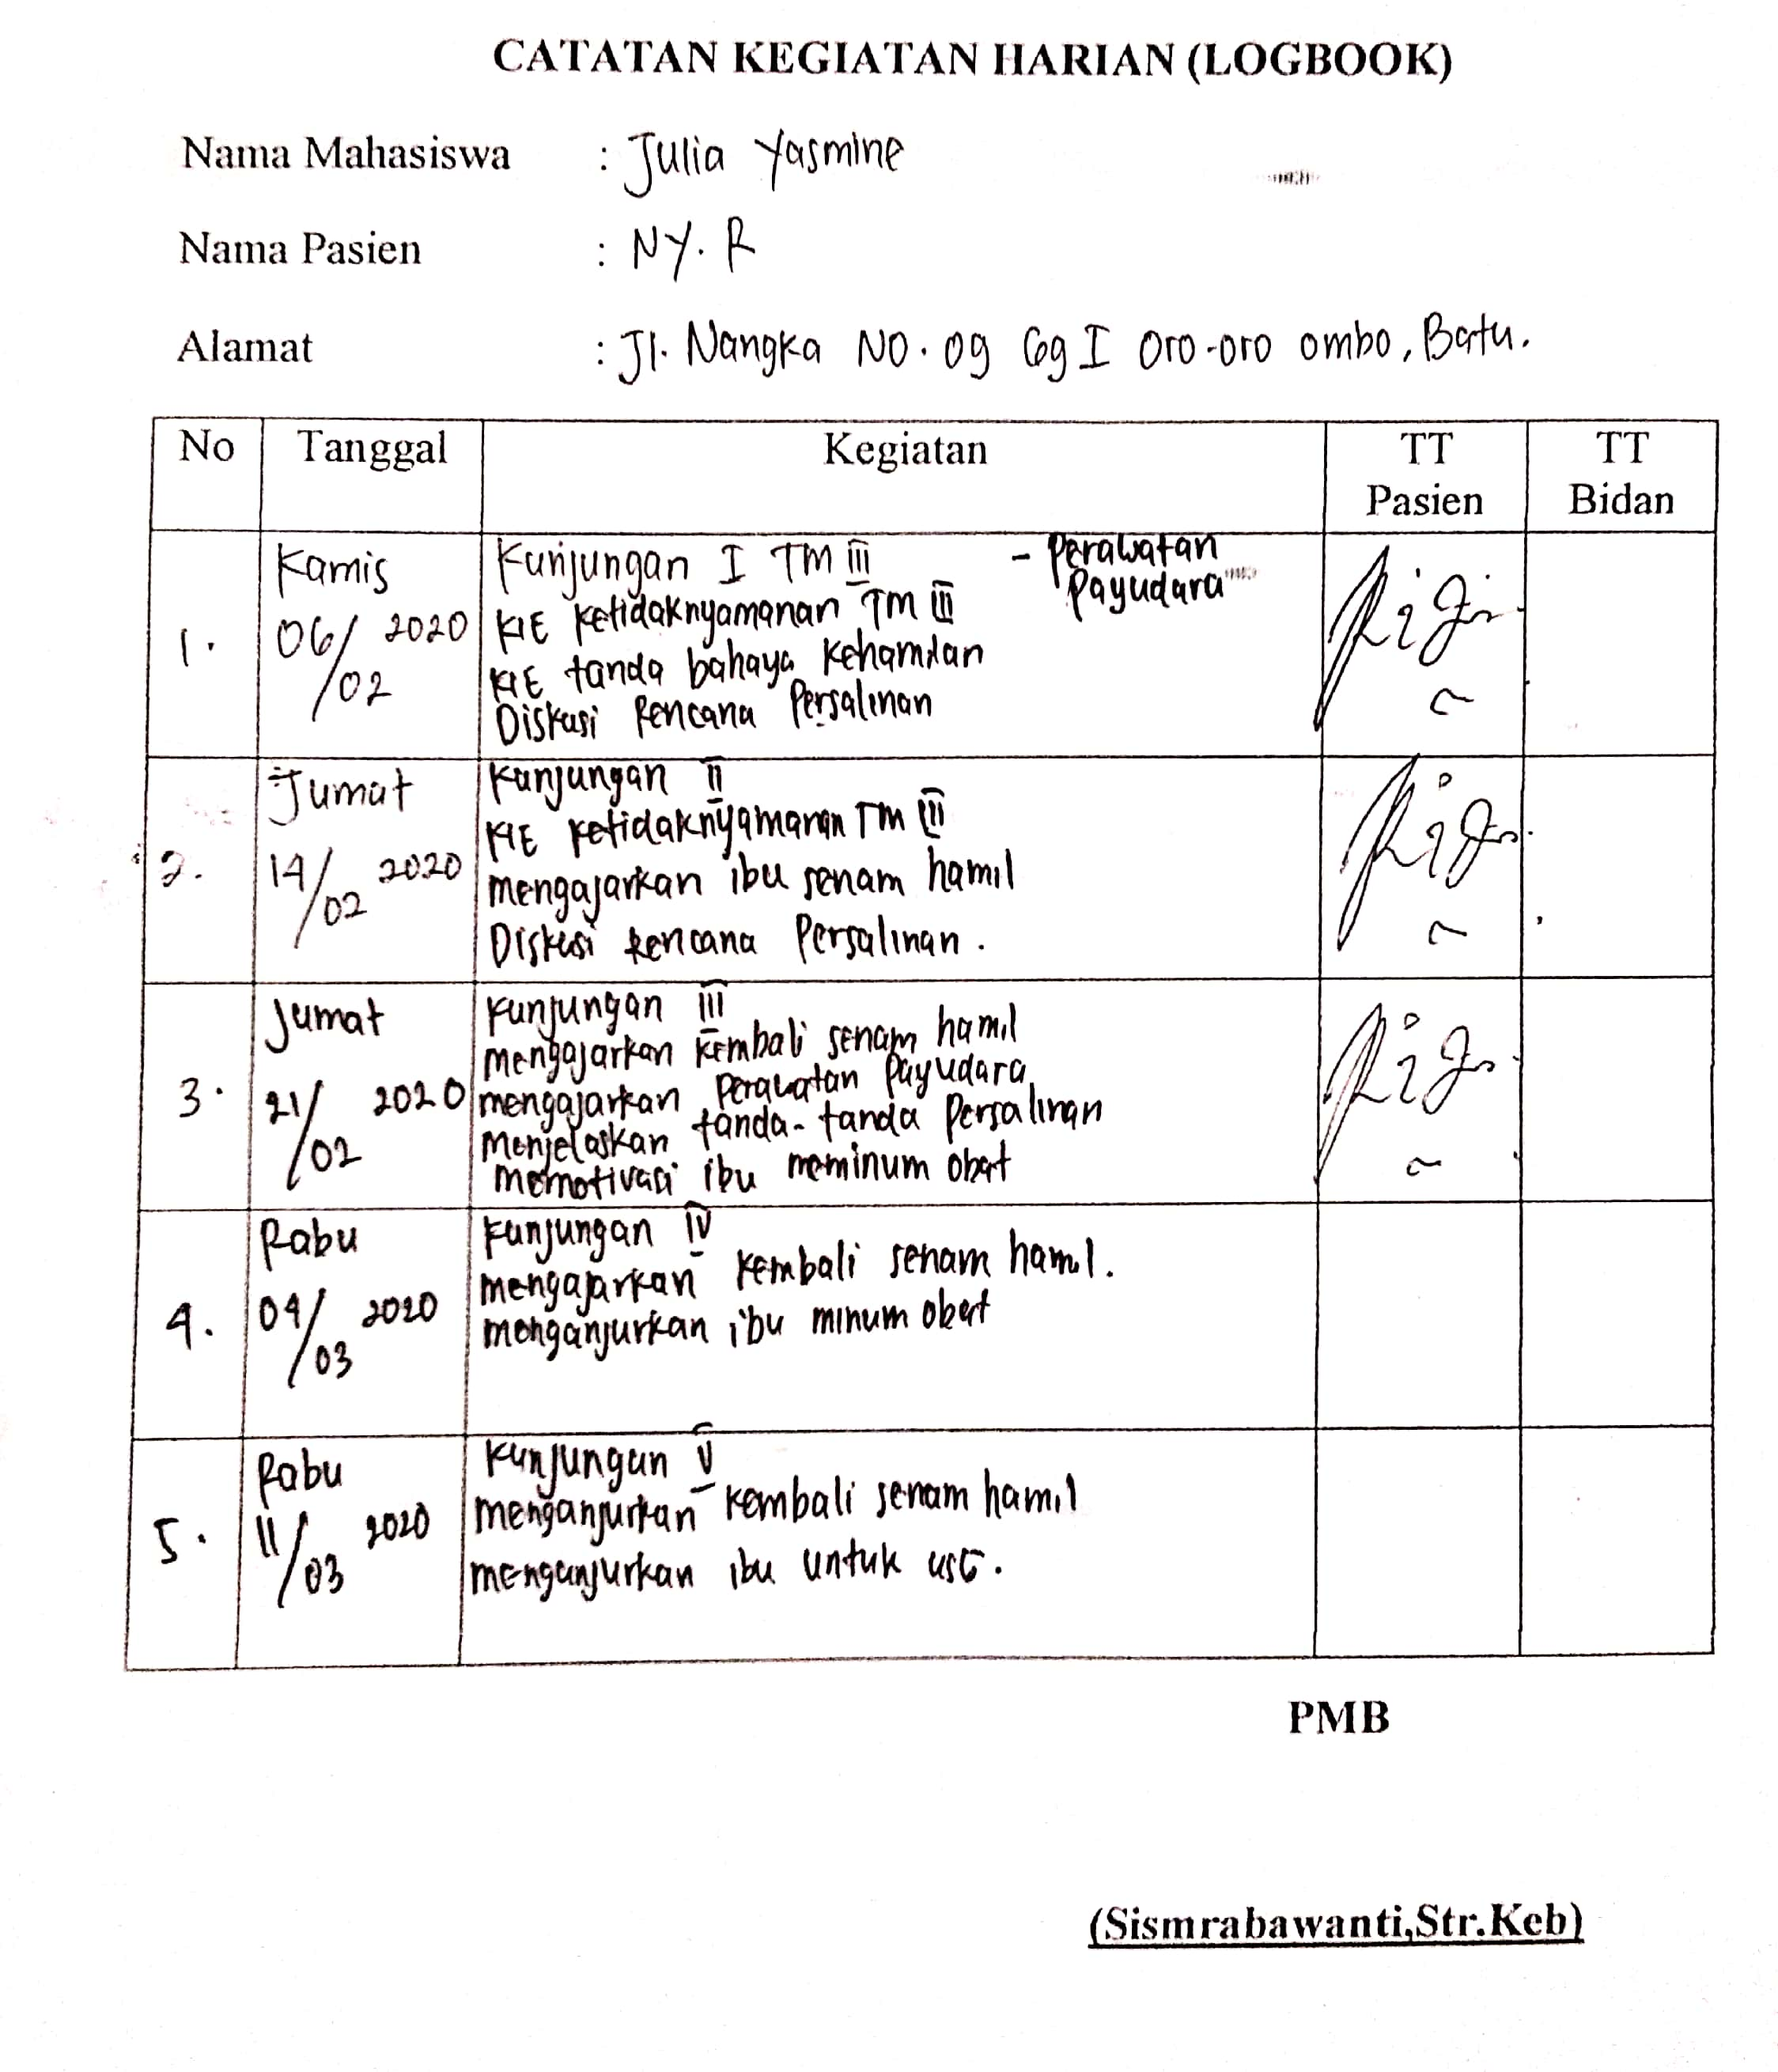 CATATAN KEGIATAN HARIAN (LOGBOOK)
Nama Mahasiswa : Julia Yasmine
Nama Pasien : NY. R
Alamat : Jl. Nangka NO. 09 Gg I Oro-oro ombo, Batu.
No Tanggal Kegiatan TT Pasien TT Bidan
1. Kamis 06/02 2020
Kunjungan I TM III
KIE ketidaknyamanan TM III
KIE tanda bahaya kehamilan
Diskusi Rencana Persalinan
- Perawatan
Payudara
2. Jumat 14/02 2020
Kunjungan II
KIE ketidaknyamanan TM III
mengajarkan ibu senam hamil
Diskusi Rencana Persalinan.
3. Jumat 21/02 2020
Kunjungan III
mengajarkan kembali senam hamil
mengajarkan perawatan payudara
menjelaskan tanda-tanda persalinan
memotivasi ibu meminum obat
4. Rabu 04/03 2020
Kunjungan IV
mengajarkan kembali senam hamil.
menganjurkan ibu minum obat
5. Rabu 11/03 2020
Kunjungan V
menganjurkan kembali senam hamil
menganjurkan ibu untuk USG.
PMB
(Sismrabawanti,Str.Keb)